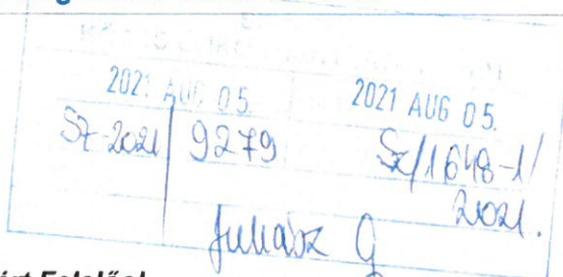 2021 AUG 05. 2021 AUG 05.
Sz-2021 9279 Sz/1648-1/
2021.
Juhász G